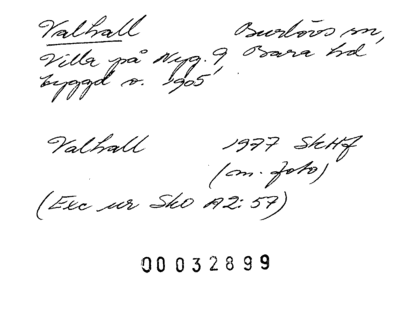 Valhall Burlövs sn,
Villa på Nyg. 9, Bara hd
byggd v. 1905
Valhall 1977 SkHf
(m. foto)
(Exc ur SkO A2:57)
00032899